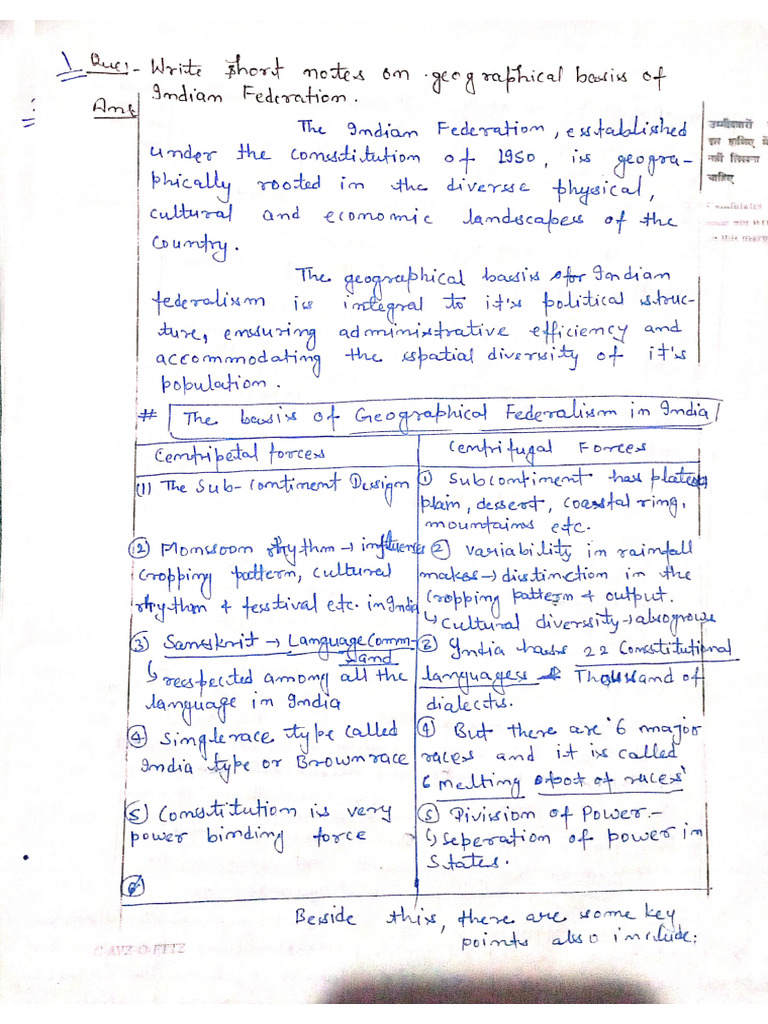 1 Ques:- Write short notes on geographical basis of
Indian Federation.
Ans
The Indian Federation, established
under the constitution of 1950, is geogra-
phically rooted in the diverse physical,
cultural and economic landscapes of the
country.
The geographical basis of Indian
federalism is integral to it's political struc-
ture, ensuring administrative efficiency and
accommodating the spatial diversity of it's
population.
# The basis of Geographical Federalism in India
Centripetal forces
(1) The Sub-Continent Design
(2) Monsoon rhythm → influences
cropping pattern, cultural
rhythm & festival etc. in India
(3) Sanskrit → Language Comm-
and
↳ respected among all the
language in India
(4) Single race type called
India type or Brown race
(5) Constitution is very
power binding force
(6)
Centrifugal Forces
(1) Subcontinent has plateau,
plain, dessert, coastal ring,
mountains etc.
(2) variability in rainfall
makes → distinction in the
cropping pattern & output.
↳ cultural diversity → also grows
(3) India has 22 Constitutional
languages & Thousand of
dialects.
(4) But there are 6 major
races and it is called
'melting pot of races'
(5) Division of Power.-
↳ seperation of power in
States.
Beside this, there are some key
points also include:
उम्मीदवारों
इस हाशिए में
नहीं लिखना
चाहिए
Candidates
must not
this margin